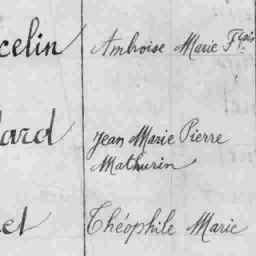 celin Ambroise Marie F.çois
lard Jean Marie Pierre
Mathurin
et Théophile Marie